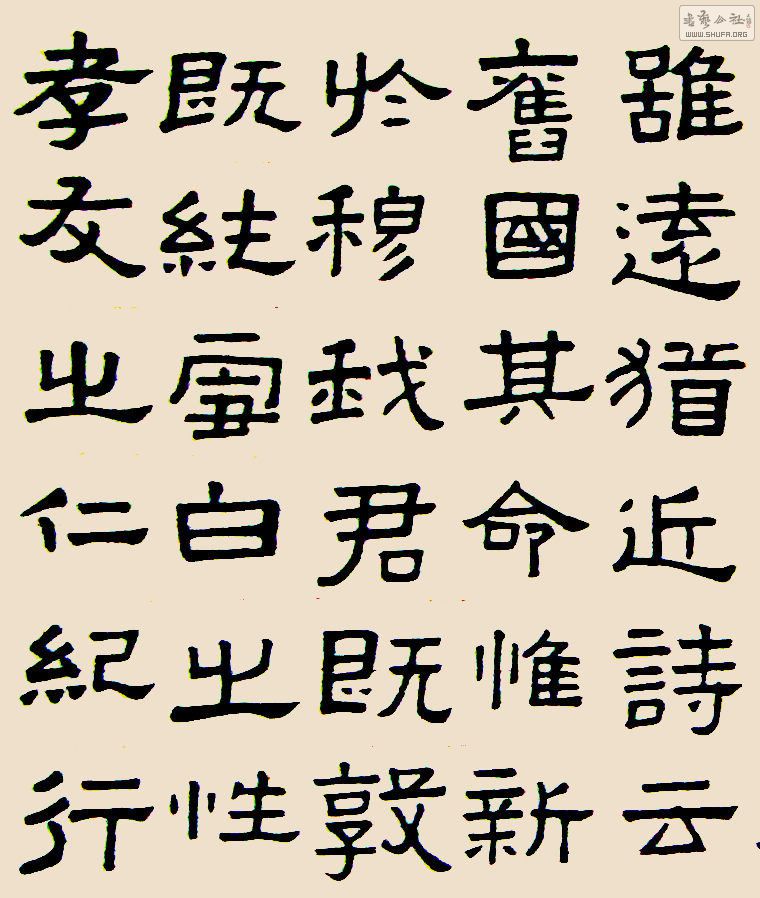 雖遠猶近詩云
舊國其命惟新
於穆我君既敦
既純雪白之性
孝友之仁紀行
書藝公社
WWW.SHUFA.ORG